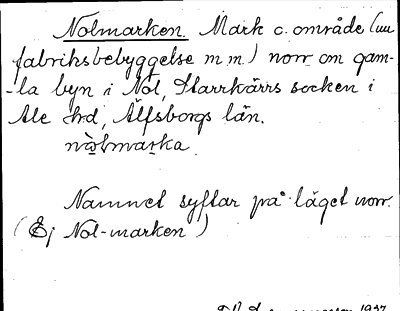 Nolmarken. Mark o. område (nu
fabriksbebyggelse m m) norr om gam-
-la byn i Nol, Starrkärrs socken i
Ale hrd, Älfsborgs län.
nọ̀lmarka.
Namnet syftar på läget norr.
(Ej Nol-marken)
1937